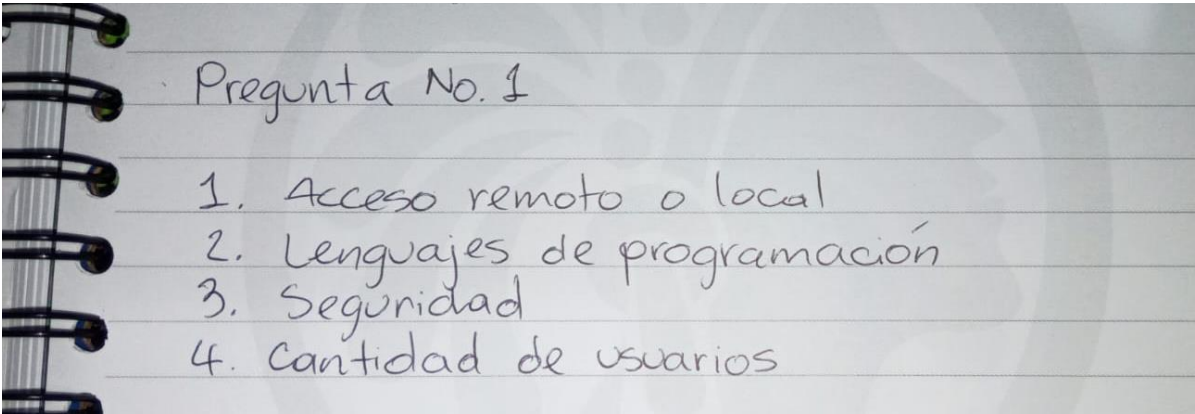 Pregunta No. 1
1. Acceso remoto o local
2. Lenguajes de programación
3. Seguridad
4. Cantidad de usuarios